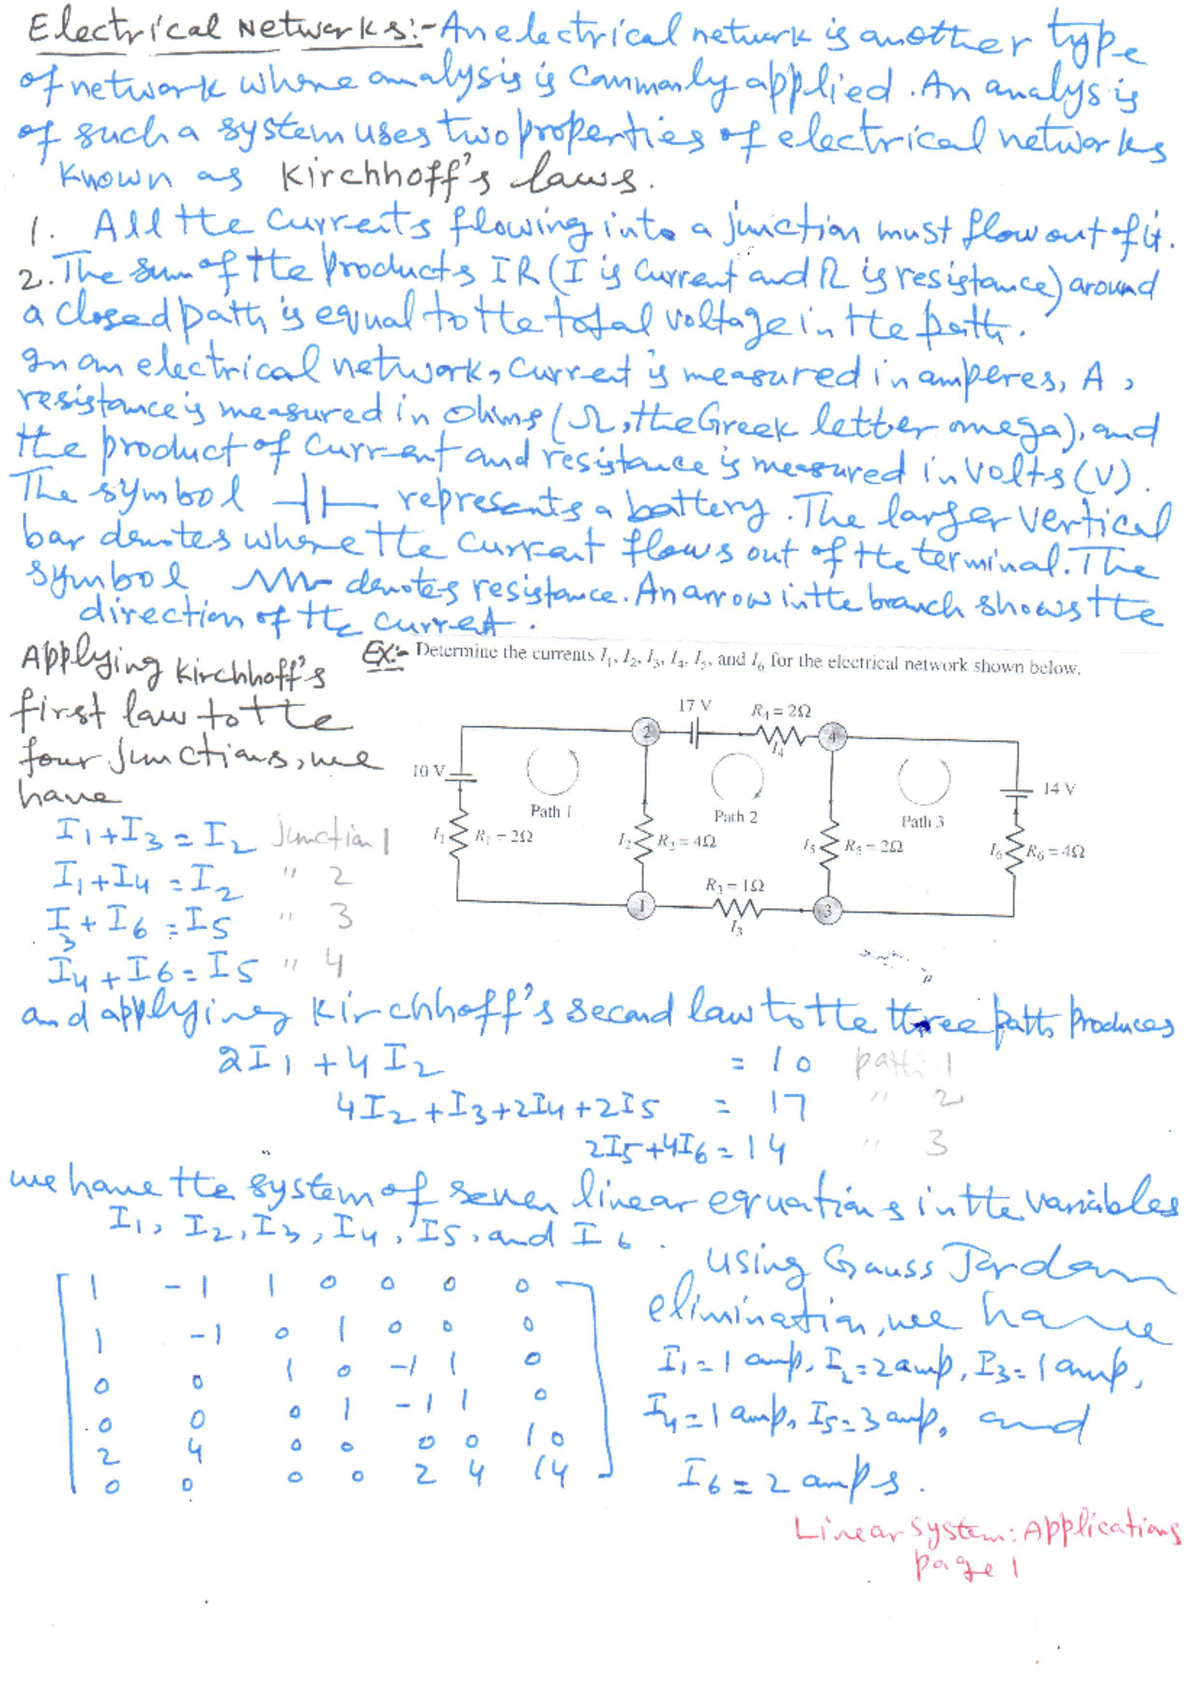 Electrical Networks:- An electrical network is another type
of network where analysis is commonly applied. An analysis
of such a system uses two properties of electrical networks
known as Kirchhoff's laws.
1. All the currents flowing into a junction must flow out of it.
2. The sum of the products IR (I is current and R is resistance) around
a closed path is equal to the total voltage in the path.
In an electrical network, current is measured in amperes, A,
resistance is measured in ohms (Ω, the Greek letter omega), and
the product of current and resistance is measured in volts (V).
The symbol represents a battery. The larger vertical
bar denotes where the current flows out of the terminal. The
symbol denotes resistance. An arrow in the branch shows the
direction of the current.
EX:- Determine the currents I₁, I₂, I₃, I₄, I₅, and I₆ for the electrical network shown below.
Applying Kirchhoff's
first law to the
four junctions, we
have
I₁+I₃=I₂ junction 1
I₁+I₄=I₂ " 2
I₃+I₆=I₅ " 3
I₄+I₆=I₅ " 4
17 V R₄=2Ω
2 I₄ 4
10 V 14 V
Path 1 Path 2 Path 3
I₁ R₁=2Ω I₂ R₂=4Ω I₅ R₅=2Ω I₆ R₆=4Ω
R₃=1Ω
1 I₃ 3
and applying Kirchhoff's second law to the three paths produces
2I₁+4I₂ = 10 path 1
4I₂+I₃+2I₄+2I₅ = 17 " 2
2I₅+4I₆=14 " 3
we have the system of seven linear equations in the variables
I₁, I₂, I₃, I₄, I₅, and I₆.
1 -1 1 0 0 0 0
1 -1 0 1 0 0 0
0 0 1 0 -1 1 0
0 0 0 1 -1 1 0
2 4 0 0 0 0 10
0 0 0 0 2 4 14
using Gauss Jordan
elimination, we have
I₁=1 amp, I₂=2 amp, I₃=1 amp,
I₄=1 amp, I₅=3 amp, and
I₆=2 amps.
Linear System: Applications
page 1